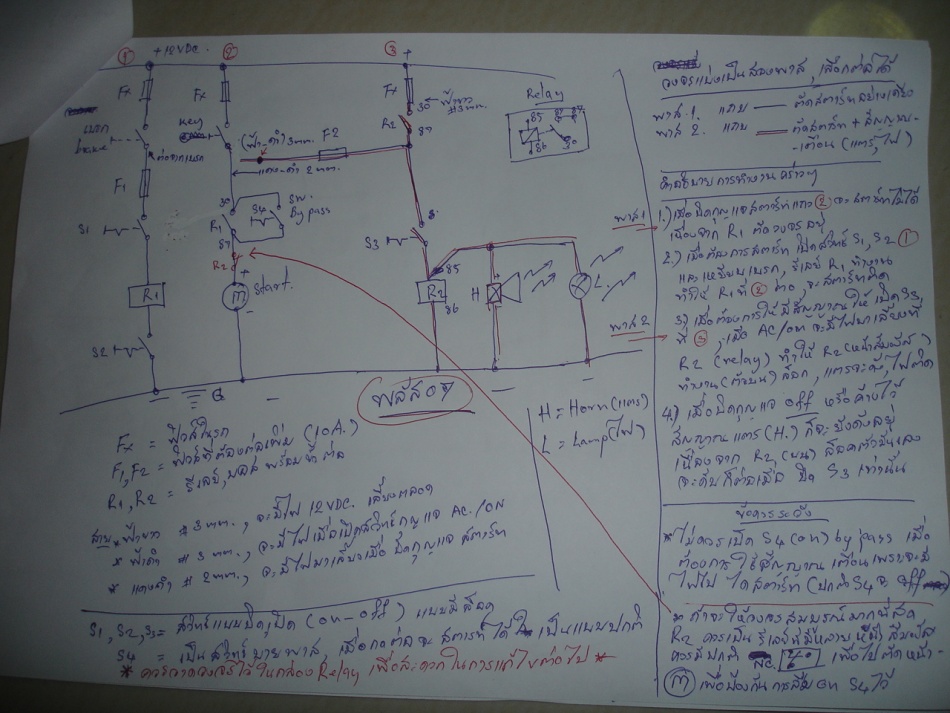 ① +12VDC. ② ③ +
Fx Fx Fx
30 ฟ้าขาว #3mm.
R2
87
Relay
85 87
86 30
เบรก key
(ฟ้า-ดำ) 3mm. F2
ต่อจากเบรก แดง-ดำ 2mm.
F1
30 S4 SW. By pass
S1 R1 S3
87
R2 85
R1 M Start. R2 H L
86
S2
G
พลัส07
H = Horn (แตร)
L = Lamp (ไฟ)
Fx = ฟิวส์ในรถ
F1, F2 = ฟิวส์ที่ต้องต่อเพิ่ม (10A.)
R1, R2 = รีเลย์
สาย * ฟ้าขาว #3mm., จะมีไฟ 12VDC. เลี้ยงตลอด
* ฟ้าดำ #3mm., จะมีไฟเมื่อเปิดสวิทช์กุญแจ AC./ON
* แดงดำ #2mm., จะมีไฟมาเลี้ยงเมื่อ บิดกุญแจ สตาร์ท
S1, S2, S3 = สวิทช์แบบปิด,เปิด (on-off) แบบมีล็อค
S4 = เป็นสวิทช์ บายพาส, เมื่อกดต่อจะ สตาร์ทได้ เป็นแบบปกติ
* ควรวาดวงจรไว้ในกล่อง Relay เพื่อสะดวกในการแก้ไขต่อไป *
วงจรแบ่งเป็นสองพาส, เลือกต่อได้
พาส 1. แถบ ตัดสตาร์ทอย่างเดียว
พาส 2. แถบ ตัดสตาร์ท + สัญญาณ-
-เตือน (แตร,ไฟ)
คำอธิบายการทำงานคร่าวๆ
พาส 1 1.) เมื่อบิดกุญแจสตาร์ทแถว ② จะสตาร์ทไม่ได้
เนื่องจาก R1 ตัดวงจรอยู่
2.) เมื่อต้องการสตาร์ท เปิดสวิทช์ S1, S2 ①
และเหยียบเบรก, รีเลย์ R1 ทำงาน
ทำให้ R1 ที่ ② ต่อ, จะสตาร์ทติด
3) เมื่อต้องการให้มีสัญญาณ ให้เปิด S3,
พาส 2 ที่ ③, เมื่อ AC/on จะมีไฟมาเลี้ยงที่
R2 (relay) ทำให้ R2 (หน้าสัมผัส)
ทำงาน (ตัวบน) ล็อค, แตรจะดัง, ไฟติด
4) เมื่อบิดกุญแจ off หรือค้างไว้
สัญญาณแตร (H.) ก็จะ ยังดังอยู่
เนื่องจาก R2 (บน) ล็อคตัวมันเอง
จะดับก็ต่อเมื่อ ปิด S3 เท่านั้น
ข้อควรระวัง
* ไม่ควรเปิด S4 (on) by pass เมื่อ
ต้องการใช้สัญญาณเตือน เพราะจะมี
ไฟไป ไดสตาร์ท (ปกติ S4 จะ off)
* ถ้าจะให้วงจรสมบูรณ์มากที่สุด
R2 ควรเป็น รีเลย์ที่มีหลายหน้าสัมผัส
ควรมีปกติ NC. เพื่อไปตัดหน้า-
M เพื่อป้องกันการลืม on S4 ไว้